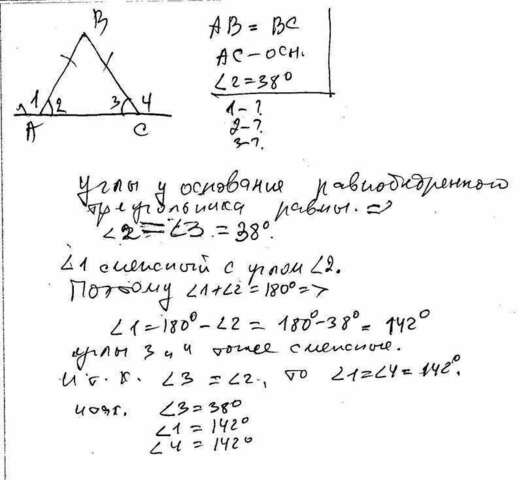 B
1 2 3 4
A C
AB = BC
AC – осн.
∠2 = 38°
1 – ?
2 – ?
3 – ?
Углы у основание равнобедренного
треугольника равны. =>
∠2 = ∠3 = 38°.
∠1 смежный с углом ∠2.
Поэтому ∠1+∠2 = 180° =>
∠1 = 180° – ∠2 = 180° – 38° = 142°
углы 3 и 4 тоже смежные.
И т. к. ∠3 = ∠2, то ∠1 = ∠4 = 142°.
∠3 = 38°
∠1 = 142°
∠4 = 142°